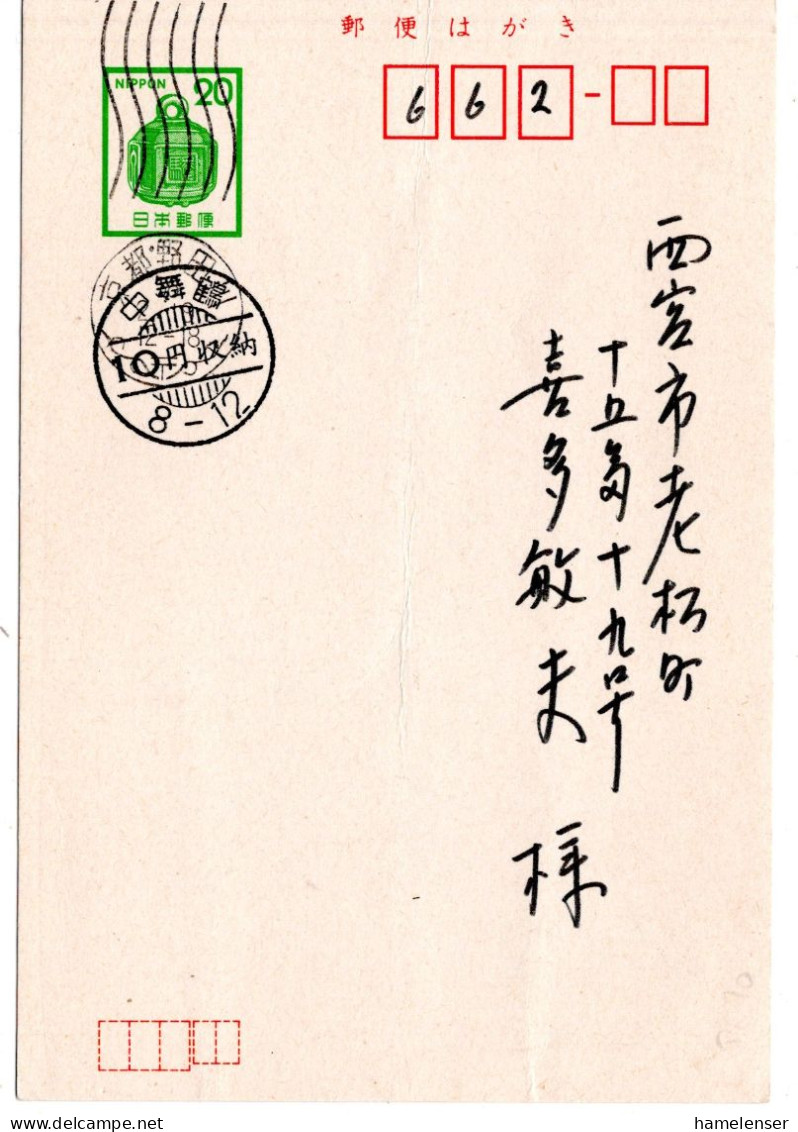 郵便はがき
NIPPON 20
日本郵便
662
西宮市老松町
十五番十九号
喜多敏夫様
京都・野田川
中舞鶴
10円収納
8-12
hamelenser